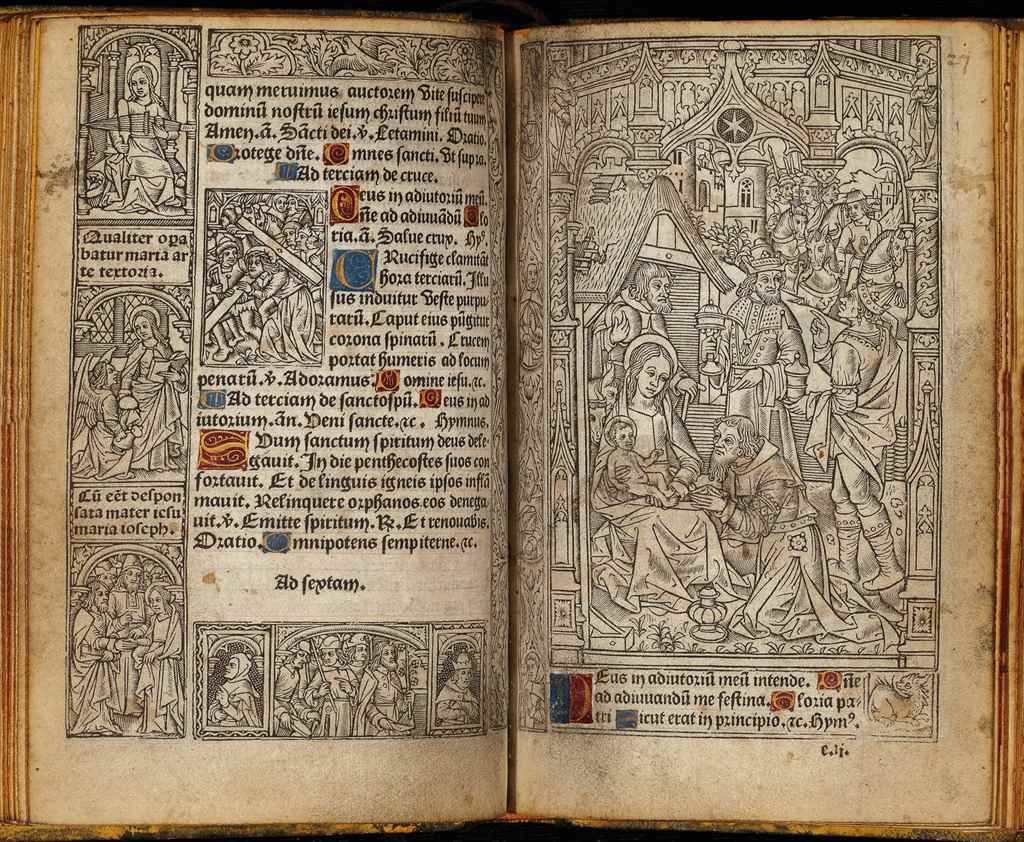 quam meruimus auctorem vite suscipere
dominū nostrū iesum christum filiū tuum
Amen. ā. Sācti dei. v̄. Letamini. Oratio.
Protege dn̄e. Omnes sancti. Ut supra.
Ad terciam de cruce.
Deus in adiutoriū meū.
Dn̄e ad adiuuādū Glo
ria. ā. Salue crux. Hyꝰ.
CRucifige clamitāt
hora terciarū. Illu
sus induitur veste purpu
rarū. Caput eius pūgitur
corona spinarū. Crucem
portat humeris ad locum
penarū. v̄. Adoramus. Domine iesu. ⁊c.
Ad terciam de sanctospū. Deus in ad
iutorium. ān. Veni sancte. ⁊c. Hymnus.
SUum sanctum spiritum deus dele-
gauit. In die penthecostes suos con
fortauit. Et de linguis igneis ipsos inflā
mauit. Relinquere orphanos eos denega
uit. v̄. Emitte spiritum. R̄. Et renouabis.
Oratio. Omnipotens sempiterne. ⁊c.
Ad sextam.
Qualiter opa
batur maria ar
te textoria.
Cū eēt despon
sata mater iesu
maria ioseph.
DEus in adiutoriū meū intende. Dn̄e
ad adiuuandū me festina. Gloria pa-
tri Sicut erat in principio. ⁊c. Hymꝰ.
e.ij.